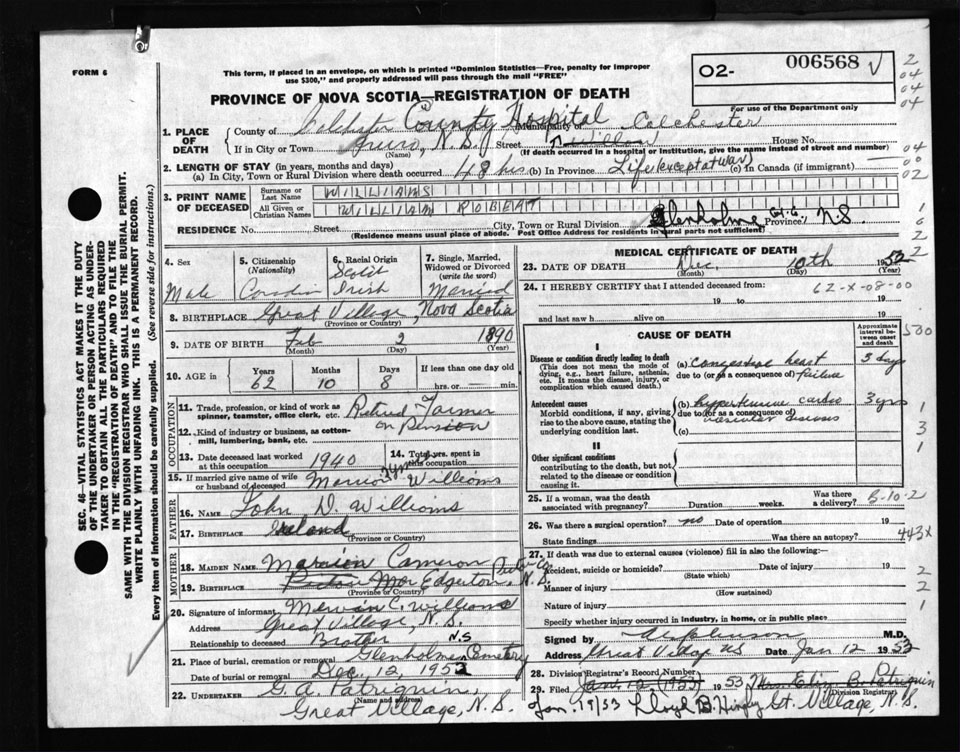 FORM 6
This form, if placed in an envelope, on which is printed "Dominion Statistics—Free, penalty for improper
use $300," and properly addressed will pass through the mail "FREE"
02- 006568
For use of the Department only
PROVINCE OF NOVA SCOTIA—REGISTRATION OF DEATH
1. PLACE OF DEATH
County of Colchester County Hospital Municipality of Colchester
If in City or Town Truro, N.S. (Name) Street House No.
(If death occurred in a hospital or institution, give the name instead of street and number)
2. LENGTH OF STAY (in years, months and days)
(a) In City, Town or Rural Division where death occurred 48 hrs (b) In Province Life (except at war) (c) In Canada (if immigrant)
3. PRINT NAME OF DECEASED
Surname or Last Name WILLIAMS
All Given or Christian Names WILLIAM ROBERT
RESIDENCE No. Street City, Town or Rural Division Glenholme Province N.S.
(Residence means usual place of abode. Post Office Address for residents in rural parts not sufficient)
4. Sex Male
5. Citizenship (Nationality) Canadian
6. Racial Origin Scotch Irish
7. Single, Married, Widowed or Divorced (write the word) Married
8. BIRTHPLACE Great Village, Nova Scotia
(Province or Country)
9. DATE OF BIRTH Feb 2 1890
(Month) (Day) (Year)
10. AGE in Years 62 Months 10 Days 8 If less than one day old hrs. or min.
OCCUPATION
11. Trade, profession, or kind of work as spinner, teamster, office clerk, etc. Retired Farmer
12. Kind of industry or business, as cotton-mill, lumbering, bank, etc. on Pension
13. Date deceased last worked at this occupation 1940
14. Total yrs. spent in this occupation
15. If married give name of wife or husband of deceased Williams
FATHER
16. NAME John D. Williams
17. BIRTHPLACE Ireland
(Province or Country)
MOTHER
18. MAIDEN NAME Marion Cameron
19. BIRTHPLACE Edgerton, Pictou Co. N.S.
(Province or Country)
20. Signature of informant Mervin C. Williams
Address Great Village, N.S.
Relationship to deceased Brother N.S
21. Place of burial, cremation or removal Glenholme Cemetery
Date of burial or removal Dec. 12, 1952
22. UNDERTAKER G. A. Patriquin,
(Name and address)
Great Village, N.S.
MEDICAL CERTIFICATE OF DEATH
23. DATE OF DEATH Dec. 10th 1952
(Month) (Day) (Year)
24. I HEREBY CERTIFY that I attended deceased from: 62-X-08-00
19 to 19
and last saw h alive on 19
CAUSE OF DEATH
Approximate interval between onset and death
I
Disease or condition directly leading to death
(This does not mean the mode of dying, e.g., heart failure, asthenia, etc. It means the disease, injury, or complication which caused death.)
(a) Congestive heart 3 days
due to (or as a consequence of) failure
Antecedent causes
Morbid conditions, if any, giving rise to the above cause, stating the underlying condition last.
(b) hypertensive cardio 3 yrs
due to (or as a consequence of) vascular disease
(c)
II
Other significant conditions
contributing to the death, but not related to the disease or condition causing it.
25. If a woman, was the death associated with pregnancy? Duration weeks. Was there a delivery? B-10-2
26. Was there a surgical operation? no Date of operation 19
State findings Was there an autopsy? 443X
27. If death was due to external causes (violence) fill in also the following:
Accident, suicide or homicide? Date of injury 19
(State which)
Manner of injury
(How sustained)
Nature of injury
Specify whether injury occurred in industry, in home, or in public place
Signed by M.D.
Address Great Village NS Date Jan 12 1953
28. Division Registrar's Record Number
29. Filed Jan. 12 (1953) 1953 Mrs. B. Patriquin
(Division Registrar)
Jan. 17/53 Lloyd B. Gt. Village, N.S.
SEC. 46—VITAL STATISTICS ACT MAKES IT THE DUTY
OF THE UNDERTAKER OR PERSON ACTING AS UNDER-
TAKER TO OBTAIN ALL THE PARTICULARS REQUIRED
IN THE "REGISTRATION OF DEATH" AND TO FILE THE
SAME WITH THE DIVISION REGISTRAR WHO SHALL ISSUE THE BURIAL PERMIT.
WRITE PLAINLY WITH UNFADING INK. THIS IS A PERMANENT RECORD.
Every item of information should be carefully supplied. (See reverse side for instructions.)
2
04
04
04
04
00
02
1
6
2
2
500
1
3
1
2
2
1